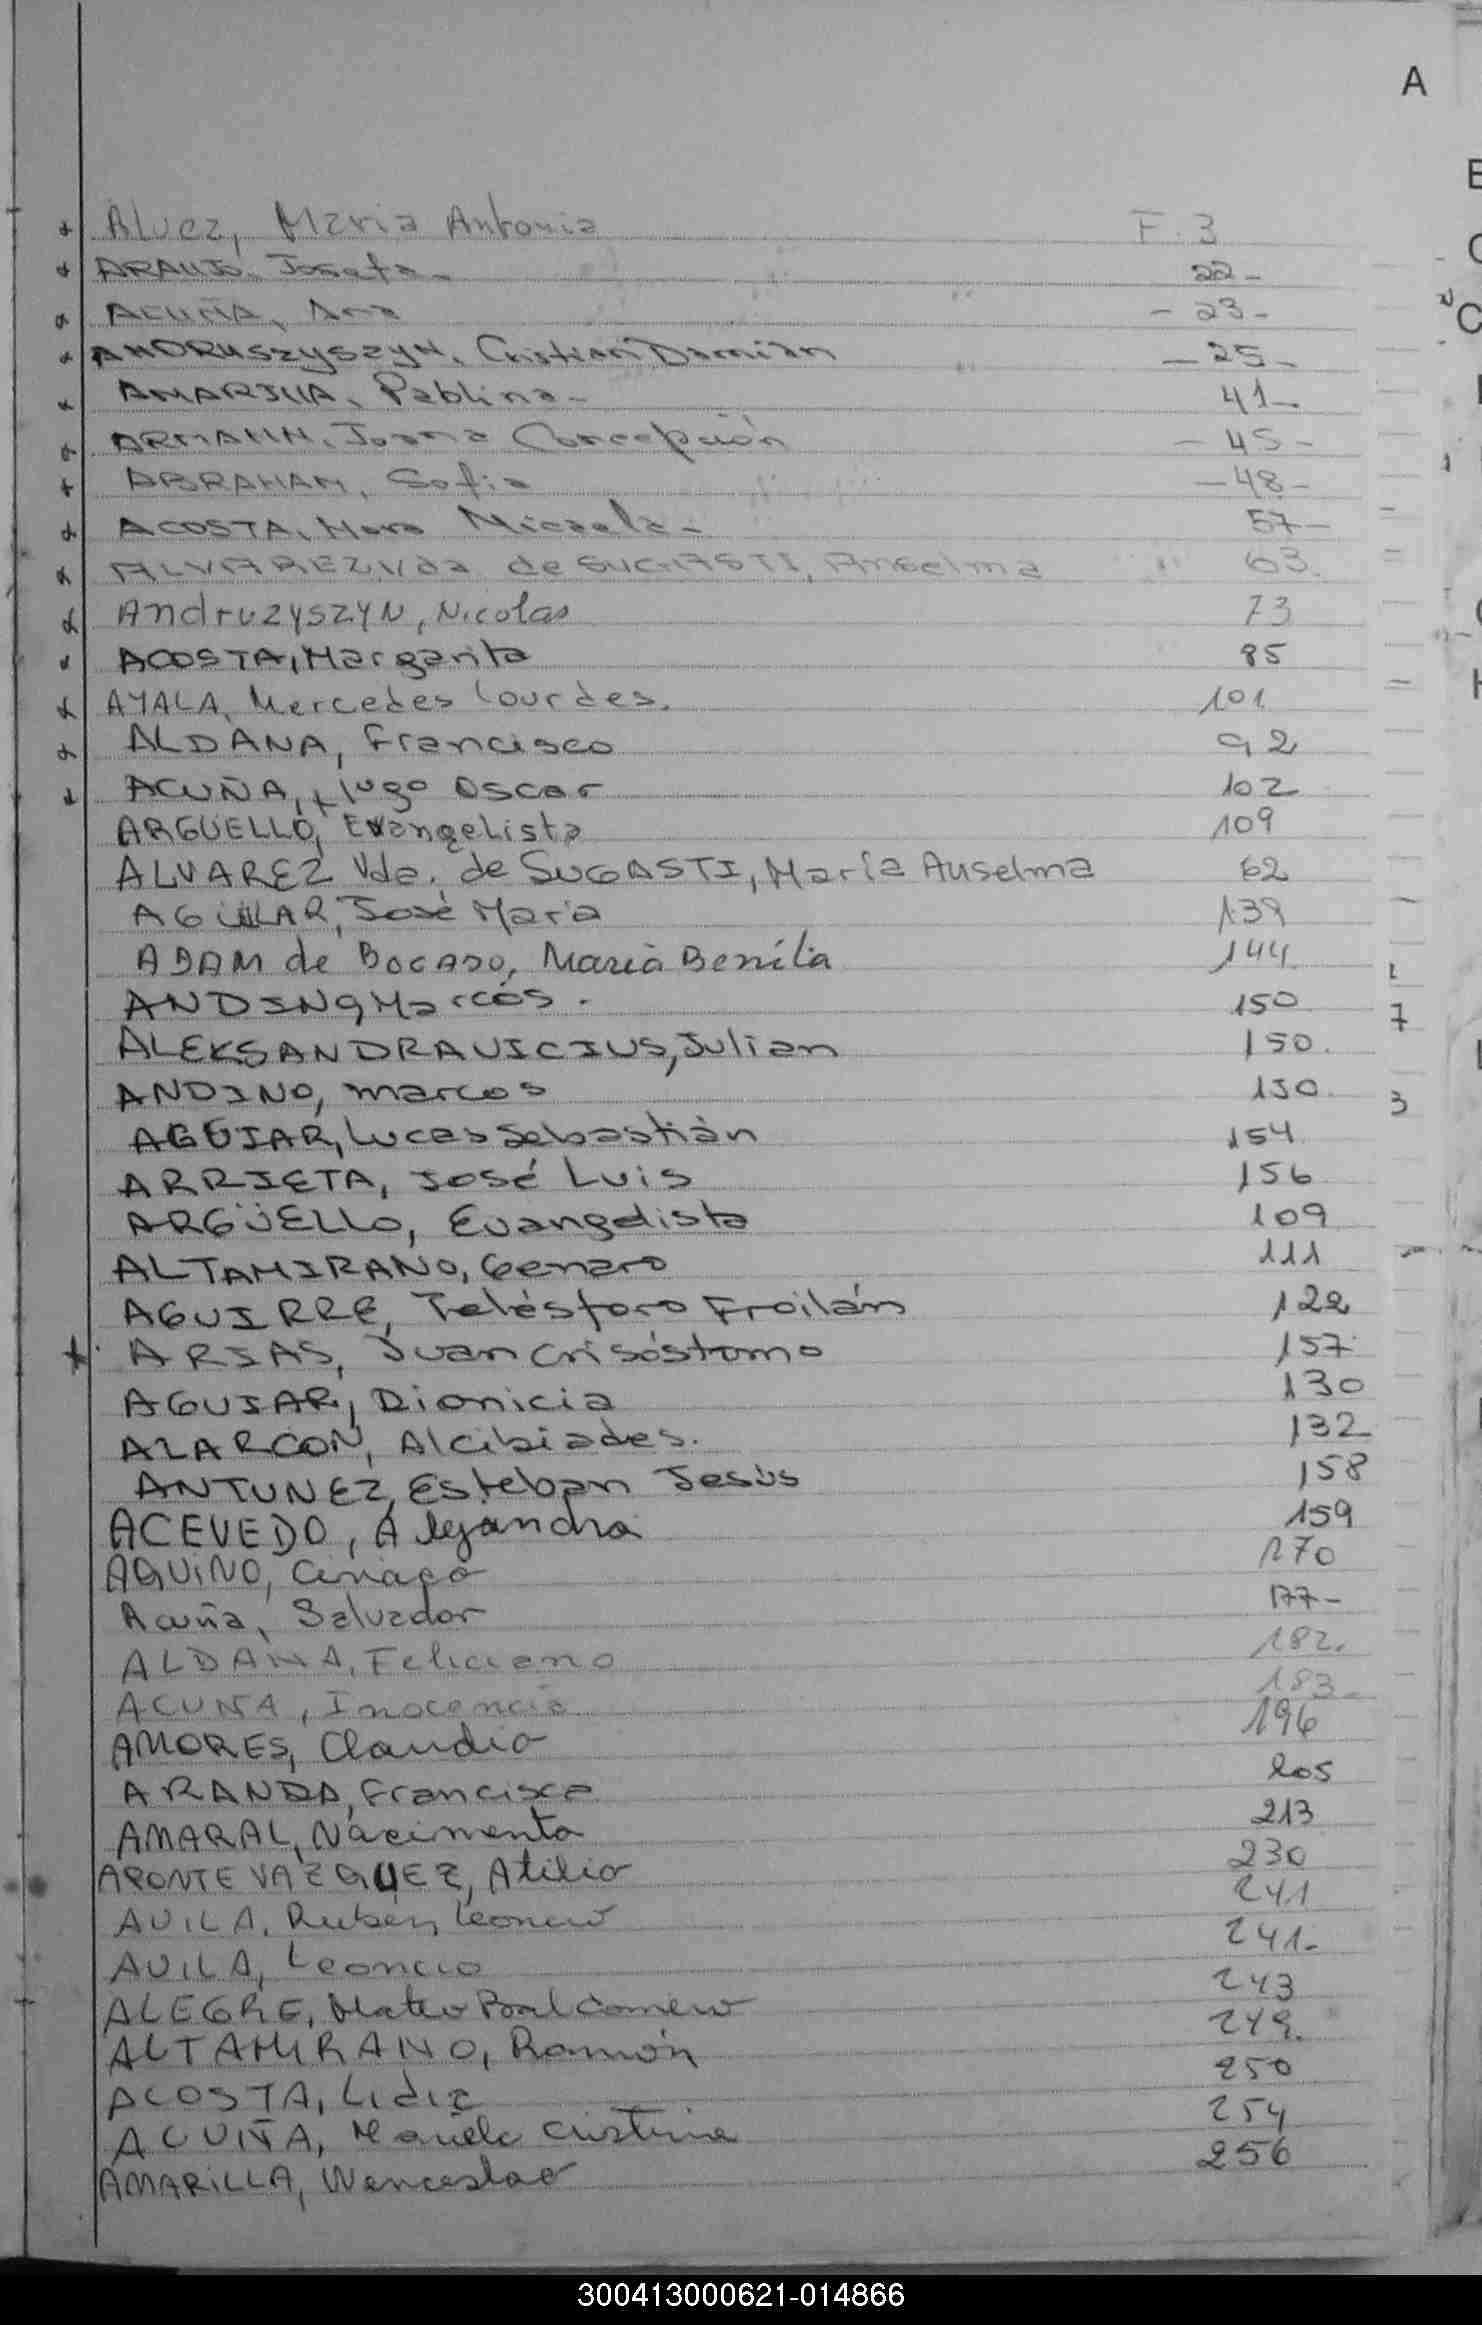 A
Alvez, Maria Antonia F. 3
ARAUJO, Josefa - 22 -
ACUÑA, Ana - 23 -
ANDRUSZYSZYN, Cristian Damián - 25 -
AMARILLA, Pablina - 41 -
ARMANN, Juana Concepción - 45 -
ABRAHAM, Sofia - 48 -
ACOSTA, Micaela - 57 -
ALVAREZ, Vda de SUGASTI, Anselma 63.
AndruzyszyN, Nicolas 73
ACOSTA, Margarita 85
AYALA, Mercedes Lourdes. 101
ALDANA, Francisco 92
ACUÑA, Hugo Oscar 102
ARGÜELLO, Evangelista 109
ALVAREZ Vda. de SUGASTI, María Auselma 62
AGUILAR, José Maria 139
ADAM de BOCADO, Maria Benita 144
ANDINO, Marcos. 150
ALEKSANDRAVICIUS, Julian 150.
ANDINO, marcos 150.
AGUIAR, Lucas Sebastián 154
ARRIETA, José Luis 156
ARGÜELLO, Evangelista 109
ALTAMIRANO, Genaro 111
AGUIRRE, Telésforo Froilán 122
ARIAS, Juan Crisóstomo 157
AGUIAR, Dionicia 130
ALARCON, Alcibiades. 132
ANTUNEZ, Esteban Jesús 158
ACEVEDO, Alejandra 159
AQUINO, Ciriaco 170
Acuña, Salvador 177 -
ALDANA, Feliciano 182.
ACUÑA, Inocencia 183 -
AMORES, Claudio 196
ARANDA, Francisca 205
AMARAL, Nacimento 213
APONTE VAZQUEZ, Atilio 230
AVILA, Ruben Leoncio 241
AVILA, Leoncio 241 -
ALEGRE, Mateo 243
ALTAMIRANO, Ramón 249.
ACOSTA, Lidia 250
ACUÑA, Mariela Cristina 254
AMARILLA, Wenceslao 256
300413000621-014866